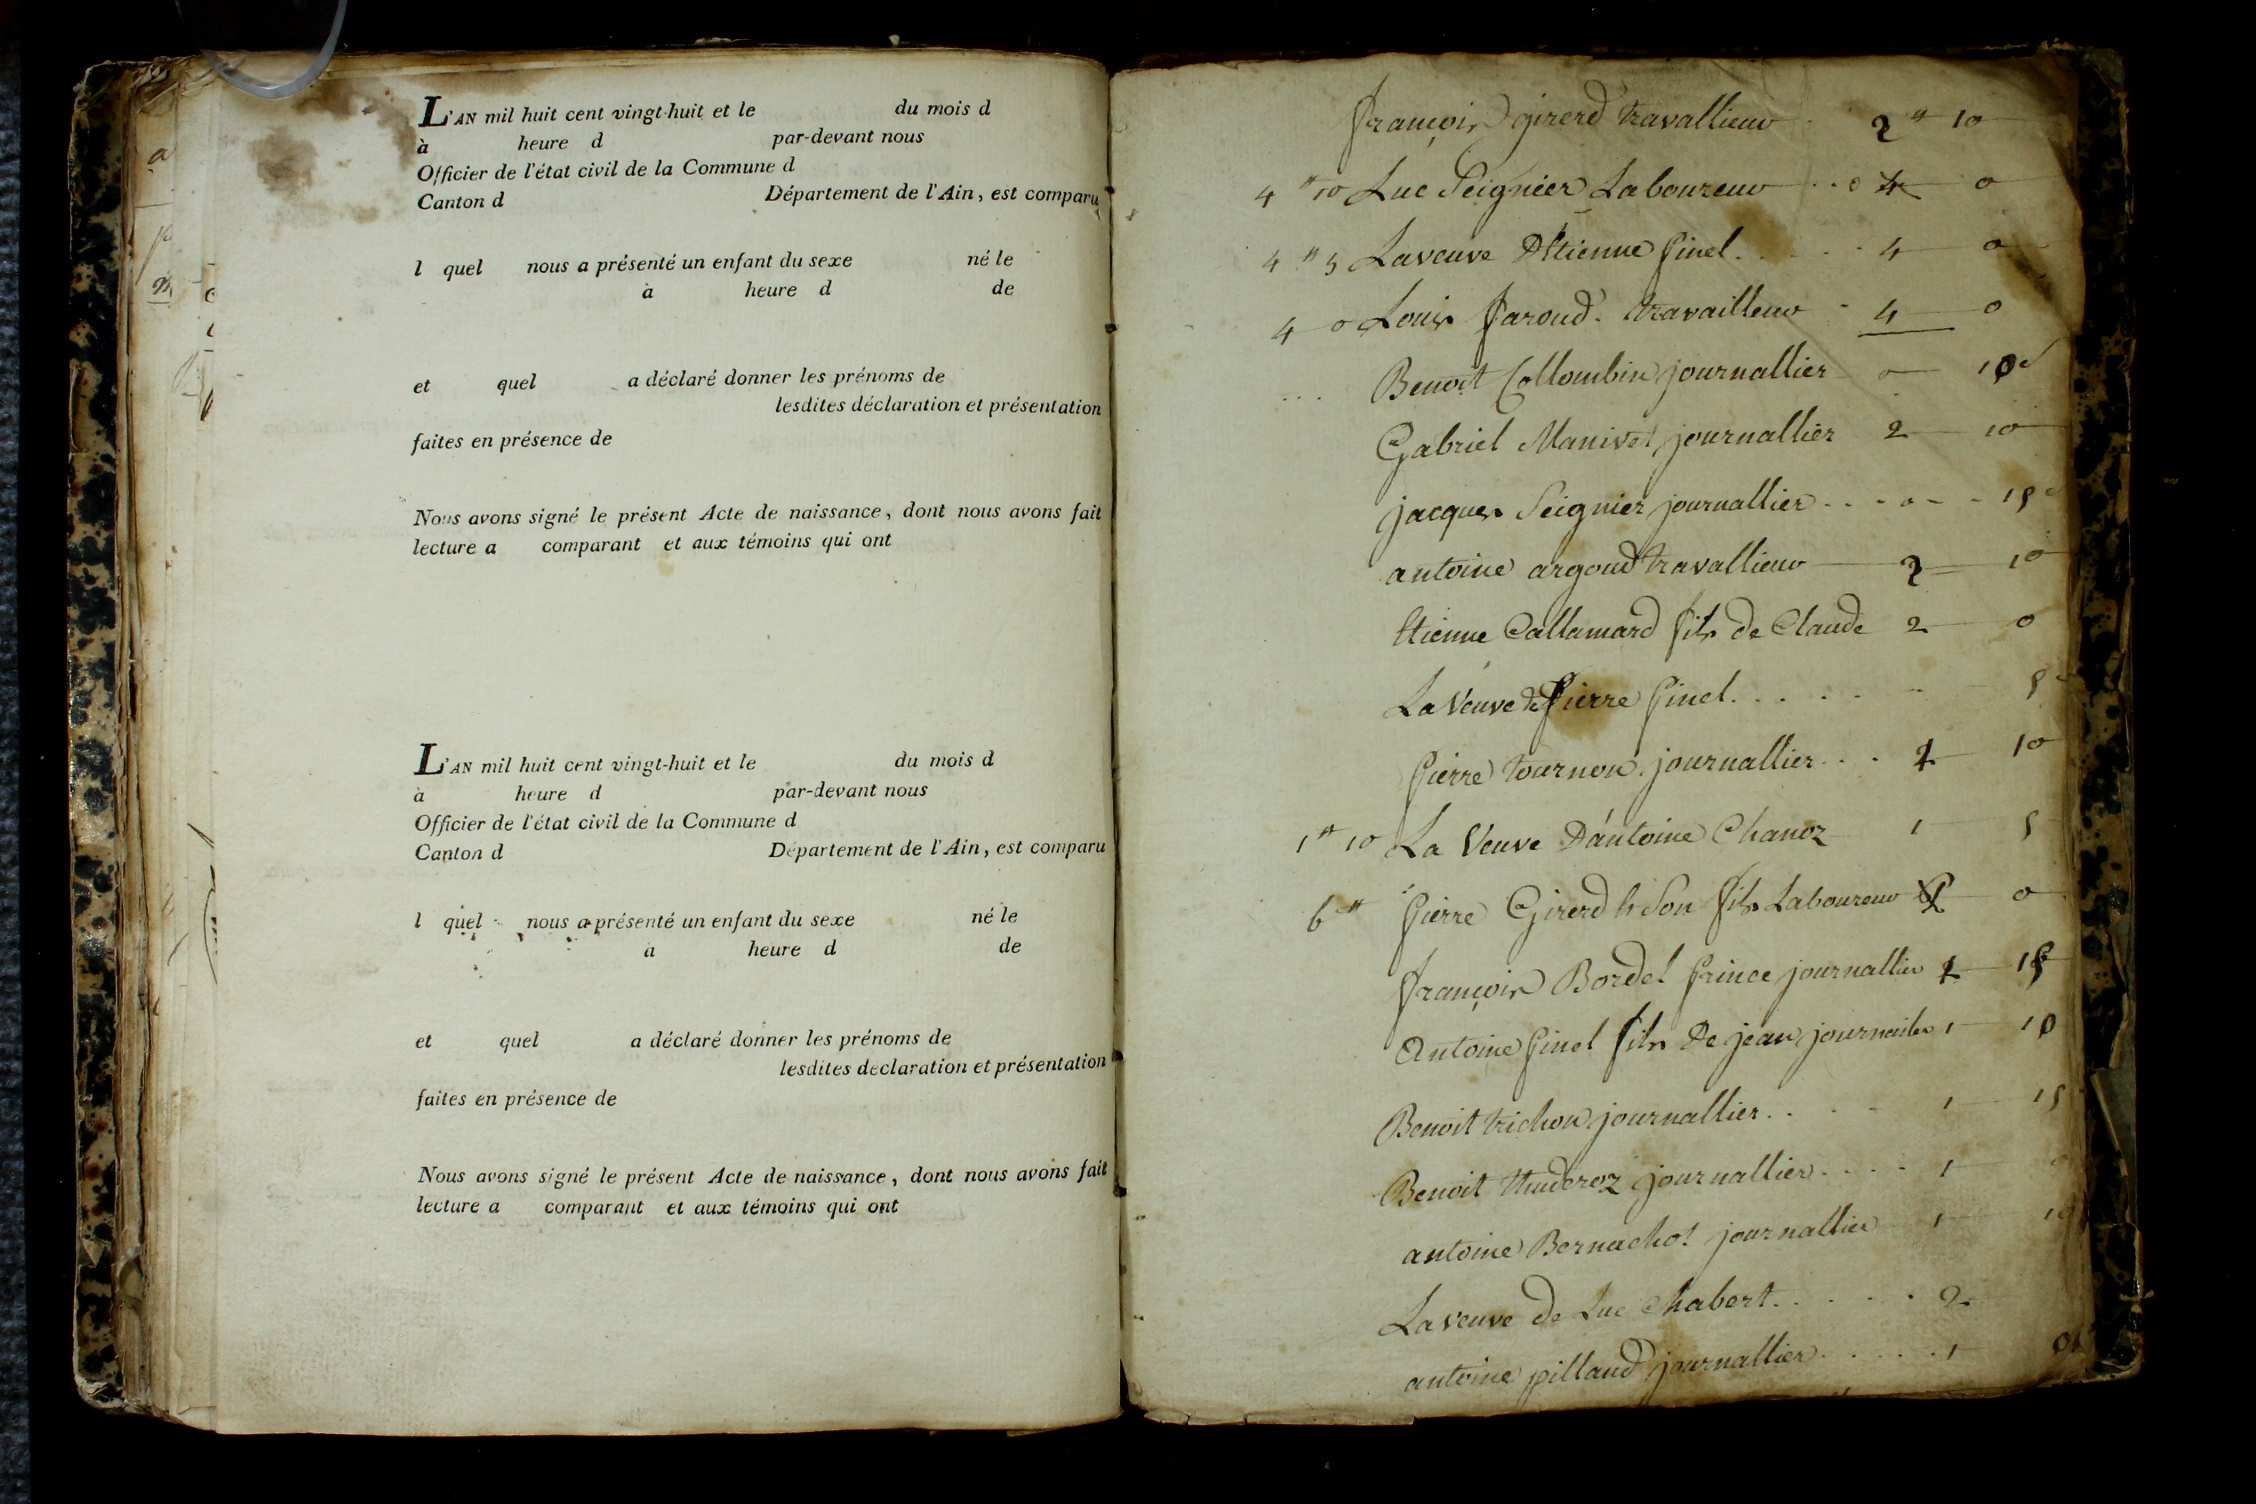 L'AN mil huit cent vingt-huit et le du mois d
à heure d par-devant nous
Officier de l'état civil de la Commune d
Canton d Département de l'Ain, est comparu
l quel nous a présenté un enfant du sexe né le
à heure d de
et quel a déclaré donner les prénoms de
lesdites déclaration et présentation
faites en présence de
Nous avons signé le présent Acte de naissance, dont nous avons fait
lecture a comparant et aux témoins qui ont
L'AN mil huit cent vingt-huit et le du mois d
à heure d par-devant nous
Officier de l'état civil de la Commune d
Canton d Département de l'Ain, est comparu
l quel nous a présenté un enfant du sexe né le
à heure d de
et quel a déclaré donner les prénoms de
lesdites déclaration et présentation
faites en présence de
Nous avons signé le présent Acte de naissance, dont nous avons fait
lecture a comparant et aux témoins qui ont
françois girerd travallieur 2 10
4 10 Luc Seignier Laboureur 4 0
4 5 La veuve D'Etienne pinel 4 0
4 0 Louis faroud travailleur 4 0
Benoit Collombin journallier 0 10
Gabriel Manivet journallier 2 10
jacques Seignier journallier 0 15
antoine argoud travallieur 2 10
Etienne Callamard fils de Claude 2 0
La Veuve de pierre pinel 5
pierre tournon journallier 10
1 10 La Veuve D'antoine Chanoz 1 5
6 pierre Girerd Son fils Laboureur 0
françois Bordet prince journallier 15
Antoine pinel fils De jean journalier 1 10
Benoit trichon journallier 1 15
Benoit journallier 1
antoine Bernachot journallier 1 10
La veuve de Luc Chabert 2
antoine pillaud journallier 1